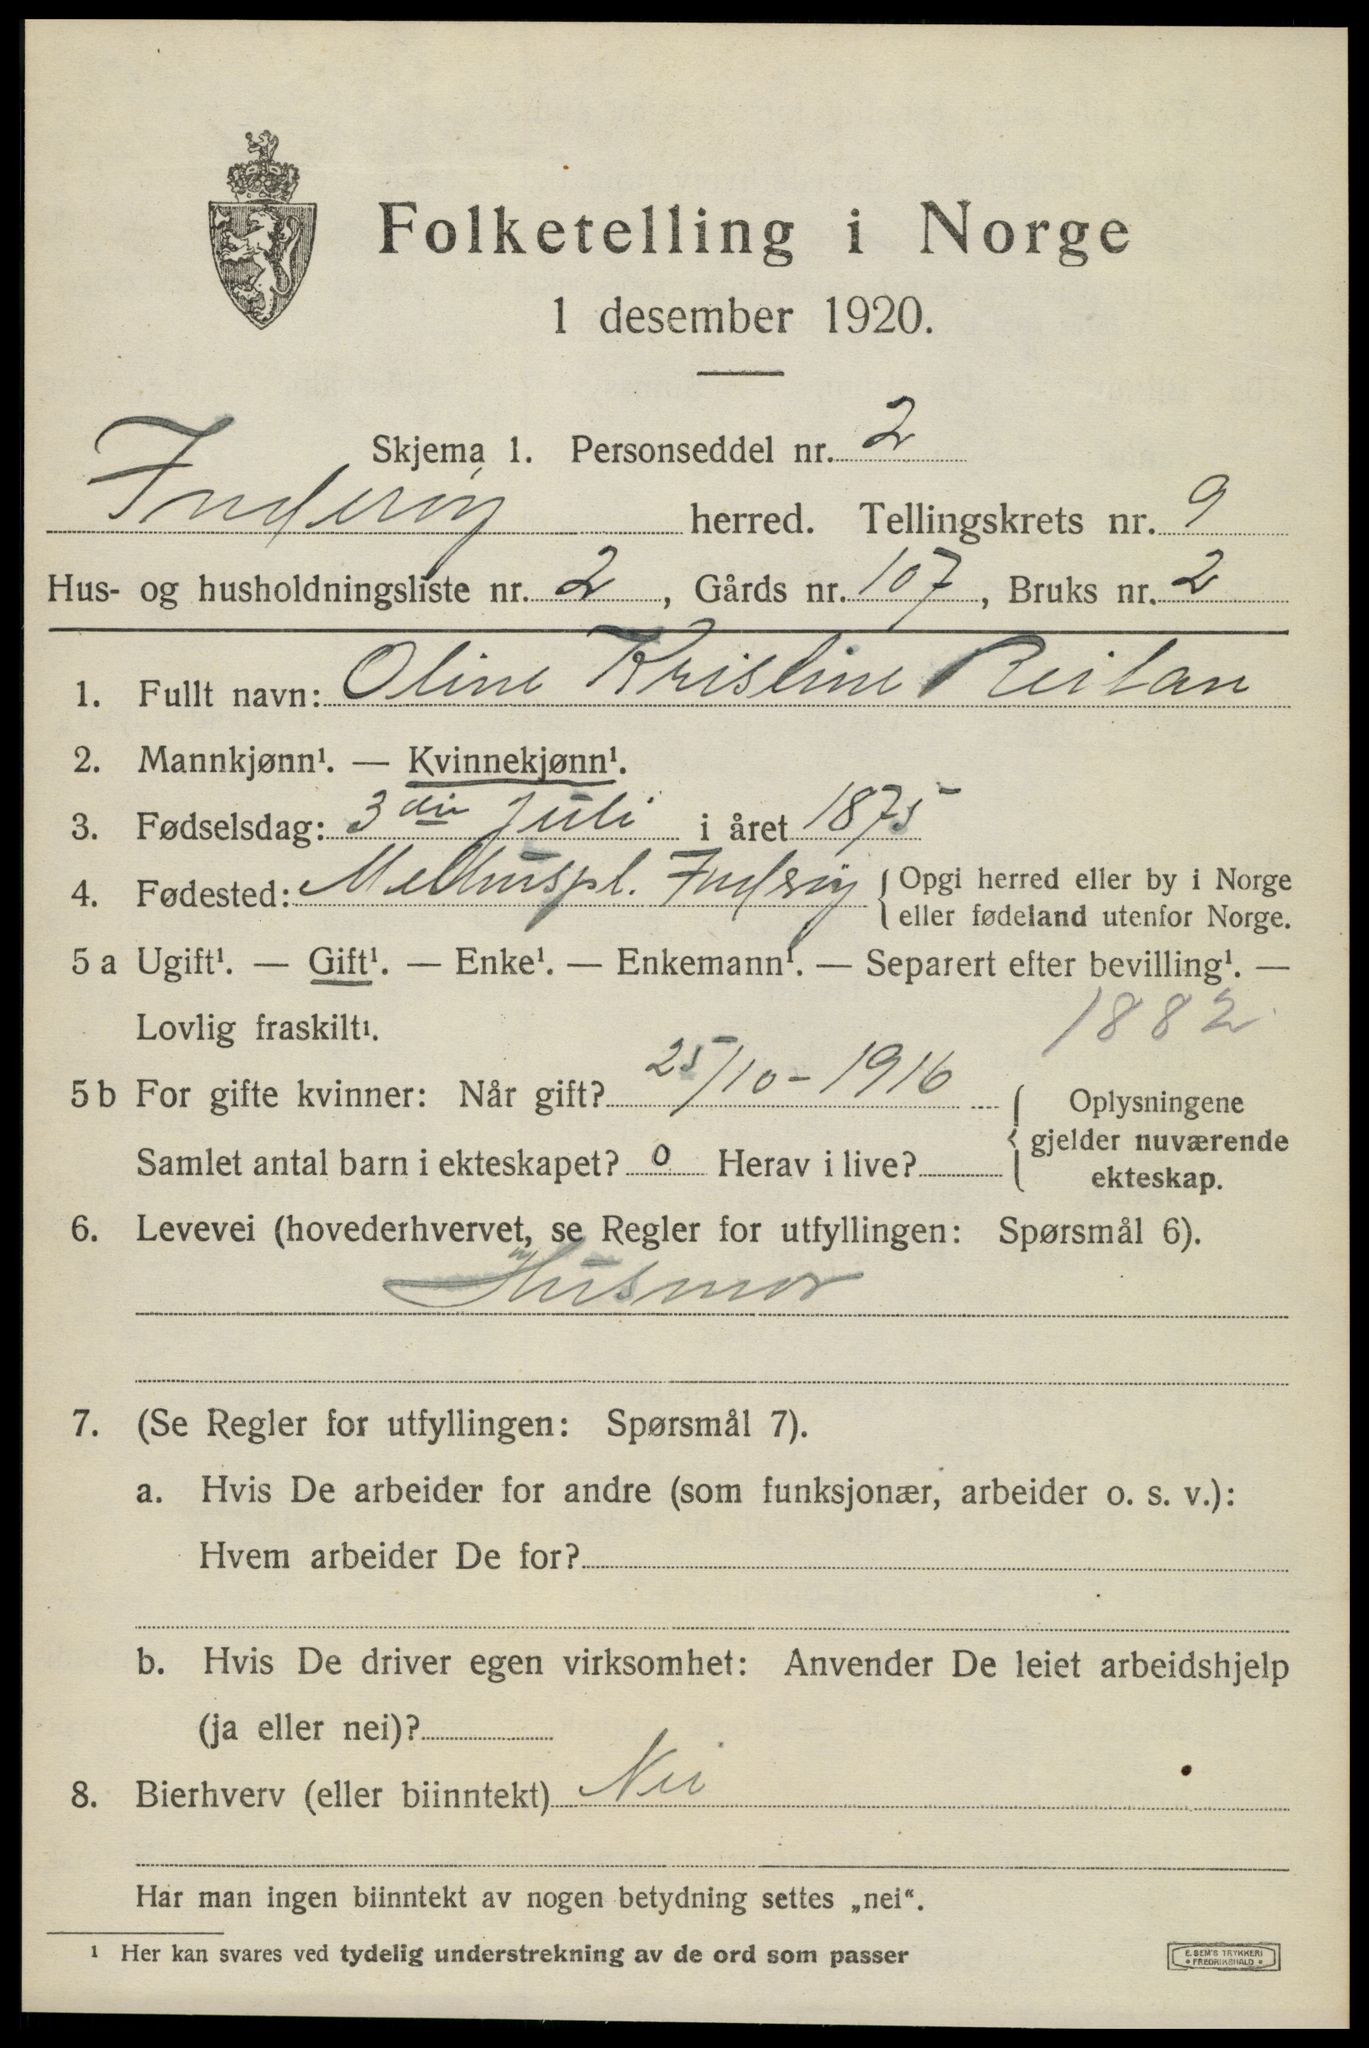 Folketelling i Norge
1 desember 1920.
Skjema 1. Personseddel nr. 2
Inderøy herred. Tellingskrets nr. 9
Hus- og husholdningsliste nr. 2, Gårds nr. 107, Bruks nr. 2
1. Fullt navn: Oline Kristine Reitan
2. Mannkjønn¹. — Kvinnekjønn¹.
3. Fødselsdag: 3die Juli i året 1875
4. Fødested: Melhuspl. Inderøy { Opgi herred eller by i Norge
eller fødeland utenfor Norge.
5 a Ugift¹. — Gift¹. — Enke¹. — Enkemann¹. — Separert efter bevilling¹. —
Lovlig fraskilt¹.
1882
5 b For gifte kvinner: Når gift? 25/10-1916
Samlet antal barn i ekteskapet? 0 Herav i live?
{ Oplysningene
gjelder nuværende
ekteskap.
6. Levevei (hovederhvervet, se Regler for utfyllingen: Spørsmål 6).
Husmor
7. (Se Regler for utfyllingen: Spørsmål 7).
a. Hvis De arbeider for andre (som funksjonær, arbeider o. s. v.):
Hvem arbeider De for?
b. Hvis De driver egen virksomhet: Anvender De leiet arbeidshjelp
(ja eller nei)?
8. Bierhverv (eller biinntekt) Nei
Har man ingen biinntekt av nogen betydning settes „nei“.
¹ Her kan svares ved tydelig understrekning av de ord som passer
E. SEM'S TRYKKERI
• FREDRIKSHALD •